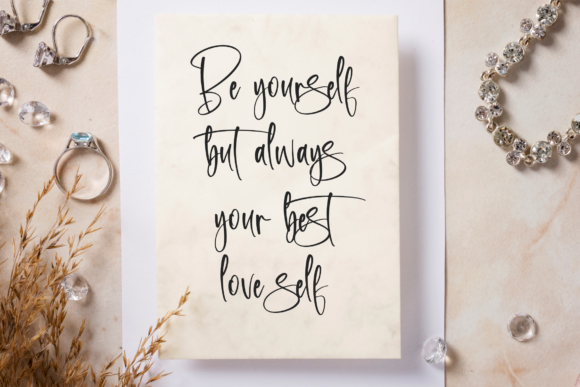 Be yourself
but always
your best
love self